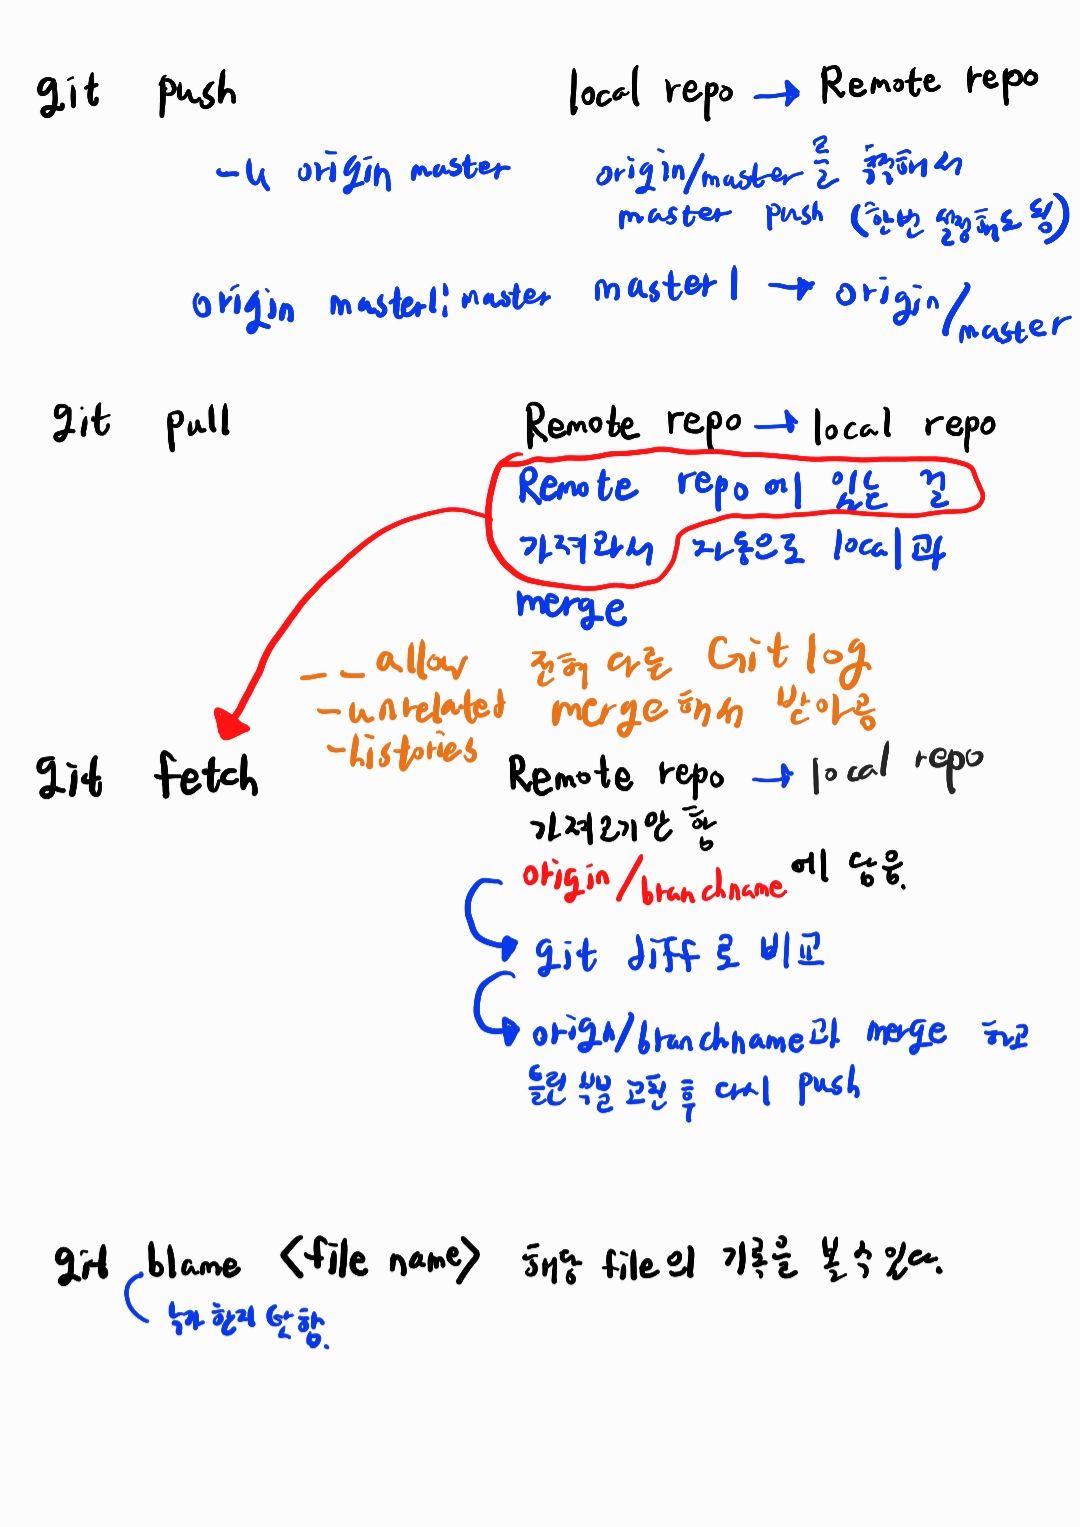 git push local repo → Remote repo
-u origin master origin/master를 추적해서
master push (한번 설정해도 됨)
origin master1:master master1 → origin/master
git pull Remote repo → local repo
Remote repo에 있는 걸
가져와서 자동으로 local과
merge
--allow 전혀 다른 Git log
-unrelated merge해서 받아옴
-histories
git fetch Remote repo → local repo
가져오기만 함
origin/branchname에 담음.
git diff로 비교
origin/branchname과 merge 하고
틀린 부분 고친 후 다시 push
git blame <file name> 해당 file의 기록을 볼 수 있다.
누가 한지 함.